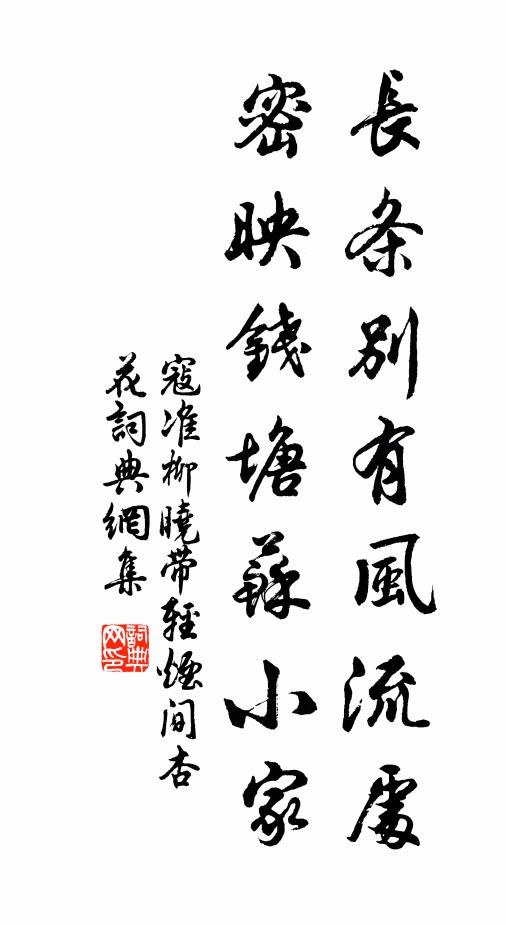 長条別有風流處
密映錢塘蘇小家
寇准柳曉帶輕煙间杏
花詞典網集
詞典
网印